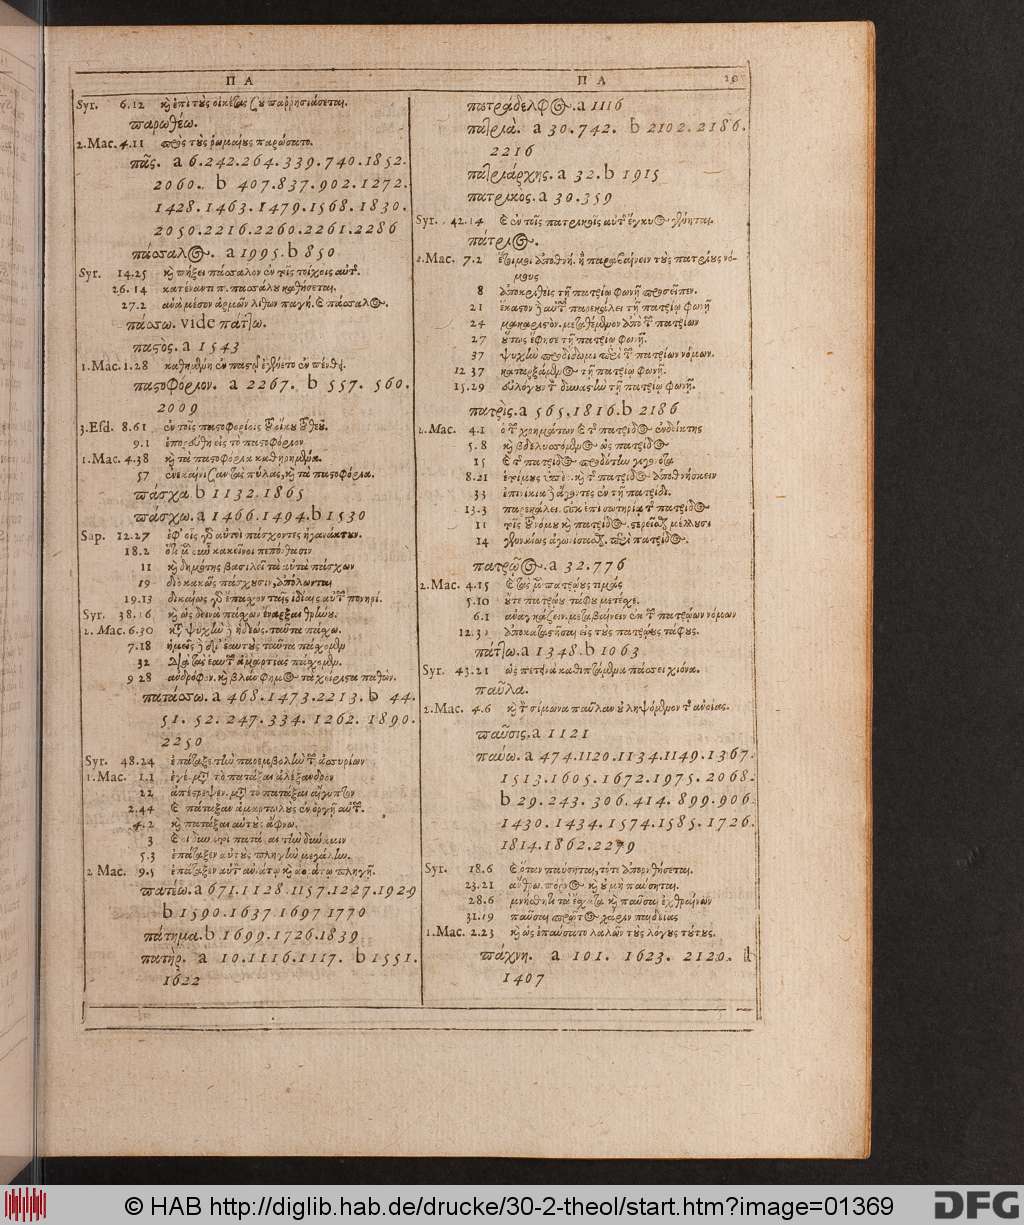 Π Α
Syr. 6.12 καὶ ἐπὶ τοὺς οἰκέτας σου παῤῥησιάσεται.
παρωθέω.
2.Mac. 4.11 πρὸς τοὺς ῥωμαίους παρώσατο.
πᾶς. a 6.242.264.339.740.1852.
2060. b 407.837.902.1272.
1428.1463.1479.1568.1830.
2050.2216.2260.2261.2286
πάσσαλος. a 1995. b 850
Syr. 14.25 καὶ πήξει πάσσαλον ἐν τοῖς τοίχοις αὐτῆς.
26.14 κατέναντι π. πασσάλου καθήσεται.
27.2 ἀνὰ μέσον ἁρμῶν λίθων παγή. πάσσαλος.
πάσσω. vide πάττω.
παστὸς. a 1543
1.Mac. 1.28 καθημένη ἐν παστῷ ἐγένετο ἐν πένθει.
παστοφόριον. a 2267. b 557. 560.
2009
3.Esd. 8.61 ἐν τοῖς παστοφορίοις τοῦ οἴκου τοῦ θεοῦ.
9.1 ἐπορεύθη εἰς τὸ παστοφόριον
1.Mac. 4.38 καὶ τὰ παστοφόρια καθηρημένα.
57 ἐνεκαίνισαν τὰς πύλας, καὶ τὰ παστοφόρια.
πάσχα b 1132.1865
πάσχω. a 1466.1494. b 1530
Sap. 12.27 ἐφ' οἷς γὰρ αὐτοὶ πάσχοντες ἠγανάκτουν.
18.2 κἀκεῖνοι πεπόνθασιν
11 καὶ δημότης βασιλεῖ τὰ αὐτὰ πάσχων
19 διὸ κακῶς πάσχουσιν, ἀπόλωνται
19.13 δικαίως γὰρ ἔπασχον ταῖς ἰδίαις αὐτῶν πονηρί.
Syr. 38.16 καὶ ὡς δεινὰ πάσχων ἔναρξαι θρήνου.
2. Mac. 6.30 κατὰ ψυχὴν δὲ ἡδέως ταῦτα πάσχω.
7.18 ἡμεῖς γὰρ δι' ἑαυτοὺς ταῦτα πάσχομεν
32 διὰ τὰς ἑαυτῶν ἁμαρτίας πάσχομεν.
9 28 ἀνδροφόν. καὶ βλάσφημος τὰ χείριστα παθών.
πατάσσω. a 468.1473.2213. b 44.
51. 52. 247. 334. 1262. 1890.
2250
Syr. 48.24 ἐπάταξε τὴν παρεμβολὴν τῶν ἀσσυρίων
1. Mac. 1.1 ἐγέ. μετὰ τὸ πατάξαι ἀλέξανδρον
22 ἀπέστρεψεν. μετὰ τὸ πατάξαι αἴγυπτον
2.44 καὶ ἐπάταξαν ἁμαρτωλοὺς ἐν ὀργῇ αὐτῶν.
4.2 καὶ πατάξαι αὐτοὺς ἄφνω.
3 πατάξαι τὴν δύναμιν
5.3 ἐπάταξεν αὐτοὺς πληγὴν μεγάλην.
2 Mac. 9.5 ἐπάταξεν αὐτὸν ἀνιάτῳ καὶ ἀοράτῳ πληγῇ.
πατέω. a 671.1128.1157.1227.1929
b 1590.1637.1697 1770
πάτημα. b 1699.1726.1839
πατήρ. a 10.1116.1117. b 1551.
1622
Π Α
πατράδελφος. a 1116
πατριὰ. a 30.742. b 2102.2186.
2216
πατριάρχης. a 32. b 1915
πατρικος. a 30.359
Syr. 42.14 καὶ ἐν τοῖς πατρικοῖς αὐτοῦ ἔγκυος γένηται.
πάτριος.
2.Mac. 7.2 ἕτοιμοι ἀποθνή. ἢ παραβαίνειν τοὺς πατρίους νόμους
8 ἀποκριθεὶς τῇ πατρίῳ φωνῇ προσεῖπεν.
21 ἕκαστον δὲ αὐτῶν παρεκάλει τῇ πατρίῳ φωνῇ
24 μακαριστὸν. μεταθέμενον ἀπὸ τῶν πατρίων
27 οὕτως ἔφησε τῇ πατρίῳ φωνῇ.
37 ψυχὴν προδίδωμι περὶ τῶν πατρίων νόμων.
12 37 καταρξάμενος τῇ πατρίῳ φωνῇ.
15.29 εὐλόγουν τὸν δυνάστην τῇ πατρίῳ φωνῇ.
πατρὶς. a 565.1816. b 2186
2. Mac. 4.1 ὁ τῶν χρημάτων καὶ τῆς πατρίδος ἐνδείκτης
5.8 καὶ βδελυσσόμενος ὡς πατρίδος
15 καὶ τῆς πατρίδος προδότην γεγονότα
8.21 ἑτοίμους ὑπὲρ. καὶ τῆς πατρίδος ἀποθνήσκειν
33 ἐπινίκια δὲ ἄγοντες ἐν τῇ πατρίδι.
13.3 παρεκάλει. οὐκ ἐπὶ σωτηρίᾳ τῆς πατρίδος
11 τοῖς τοῦ νόμου καὶ πατρίδος. στερεῖσθαι μέλλουσι
14 γενναίως ἀγωνίσασθαι. περὶ πατρίδος.
πατρῷος. a 32.776
2. Mac. 4.15 καὶ τὰς μὲν πατρῴους τιμὰς
5.10 οὔτε πατρῴου τάφου μετέσχε.
6.1 ἀναγκάζειν. μεταβαίνειν ἐκ τῶν πατρῴων νόμων
12.3 ἀποκαταστῆσαι εἰς τοὺς πατρῴους τάφους.
πάττω. a 1348. b 1063
Syr. 43.21 ὡς πετεινὰ καθιπτάμενα πάσσει χιόνα.
παῦλα.
2.Mac. 4.6 καὶ τὸν σίμωνα παῦλαν οὐ ληψόμενον τῆς ἀνοίας.
παῦσις. a 1121
παύω. a 474.1120.1134.1149.1367.
1513.1605.1672.1975.2068.
b 29.243. 306.414. 899.906.
1430.1434.1574.1585.1726.
1814.1862.2279
Syr. 18.6 καὶ ὅταν παύσηται, τότε ἀπορηθήσεται.
23.21 ἄνθρω. πόρνος καὶ οὐ μὴ παύσηται.
28.6 μνήσθητι τὰ ἔσχατα καὶ παῦσαι ἐχθραίνων
31.19 παῦσαι πρῶτος χάριν παιδείας
1.Mac. 2.23 καὶ ὡς ἐπαύσατο λαλῶν τοὺς λόγους τούτους.
πάχνη. a 101. 1623. 2120. b
1407
© HAB http://diglib.hab.de/drucke/30-2-theol/start.htm?image=01369
DFG